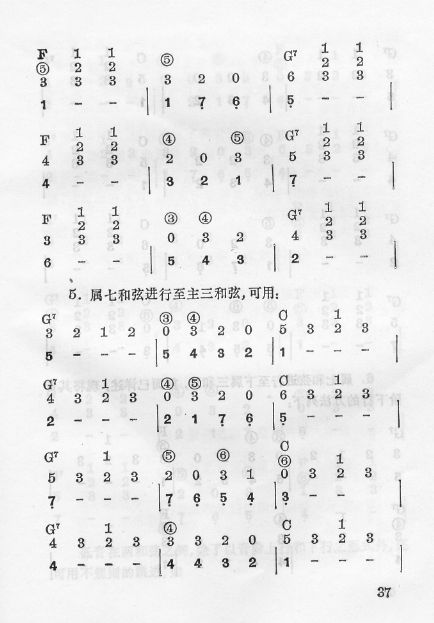 F 1 1 ⑤ G⁷ 1 1
⑤ 2 2 2 2
3 3 3 3 2 0 6 3 3
1 - - | 1 7̣ 6̣ | 5̣ - - |
F 1 1 ④ ⑤ G⁷ 1 1
2 2 2 2
4 3 3 2 0 3 5 3 3
4 - - | 3 2 1 | 7̣ - - |
F 1 1 ③ ④ G⁷ 1 1
2 2 2 2
3 3 3 0 3 2 4 3 3
6 - - | 5 4 3 | 2 - - |
5. 属七和弦进行至主三和弦,可用:
G⁷ 1 ③ ④ C 1
3 2 1 2 0 3 2 0 5 3 2 3
5 - - - | 5 4 3 2 | 1 - - - |
G⁷ 1 ④ ⑤ C 1
4 3 2 3 0 3 2 0 6 3 2 3
2 - - - | 2 1 7̣ 6̣ | 5̣ - - - |
C
G⁷ 1 ⑤ ⑥ ⑥ 1
5 3 2 3 2 0 3 1 0 3 2 3
7̣ - - - | 7̣ 6̣ 5̣ 4̣ | 3̣ - - - |
G⁷ 1 ④ C 1
4 3 2 3 3 3 2 0 5 3 2 3
4 - - - | 4 4 3 2 | 1 - - - |
37